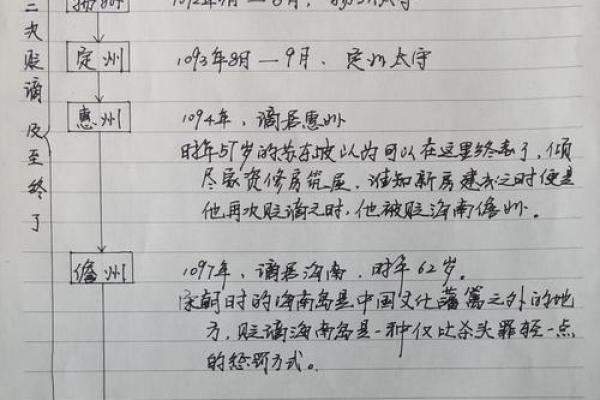 二次贬谪及至终了
扬州
定州
1093年8月—9月、定州太守
惠州
1094年、谪居惠州
时年57岁的苏东坡以为可以在这里终老了,倾
尽家资修房筑屋、谁知新房建成之时便是
他再次贬谪之时,他被贬海南儋州。
儋州
1097年、谪居海南、时年62岁。
宋朝时的海南岛是中国文化藩篱之外的地
方,贬谪海南岛是一种仅比杀头罪轻一点
的惩罚方式。